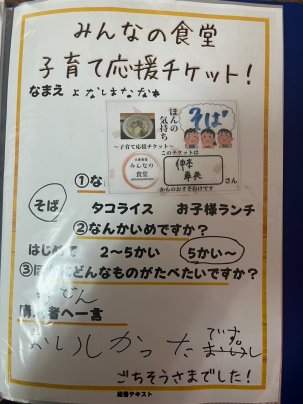 みんなの食堂
子育て応援チケット!
なまえ よなしまなお
ほんの
気持ち
そば
~子育て応援チケット~
このチケットは
みんなの
食堂
さん
からのおすそわけです
①な
そば タコライス お子様ランチ
②なんかいめですか?
はじめて 2~5かい 5かい~
③ほかにどんなものがたべたいですか?
者へ一言
おいしかったです
ごちそうさまでした!